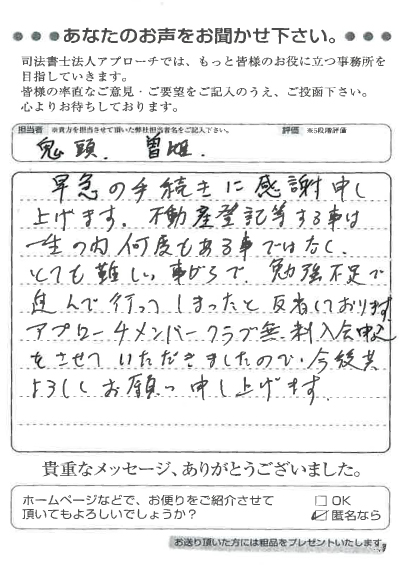 あなたのお声をお聞かせ下さい。
司法書士法人アプローチでは、もっと皆様のお役に立つ事務所を
目指していきます。
皆様の率直なご意見・ご要望をご記入のうえ、ご投函下さい。
心よりお待ちしております。
担当者 ※貴方を担当させて頂いた弊社担当者名をご記入下さい。 評価 ※5段階評価
鬼頭.
早急の手続きに感謝申し
上げます。不動産登記等する事は
一生の内何度もある事ではなく、
とても難しい事がらで、勉強不足で
進んで行ってしまったと反省しております。
アプローチメンバークラブ無料入会申込
をさせていただきましたので、今後共
よろしくお願い申し上げます。
貴重なメッセージ、ありがとうございました。
ホームページなどで、お便りをご紹介させて
頂いてもよろしいでしょうか?
□ OK
☑ 匿名なら
お送り頂いた方には粗品をプレゼントいたします。